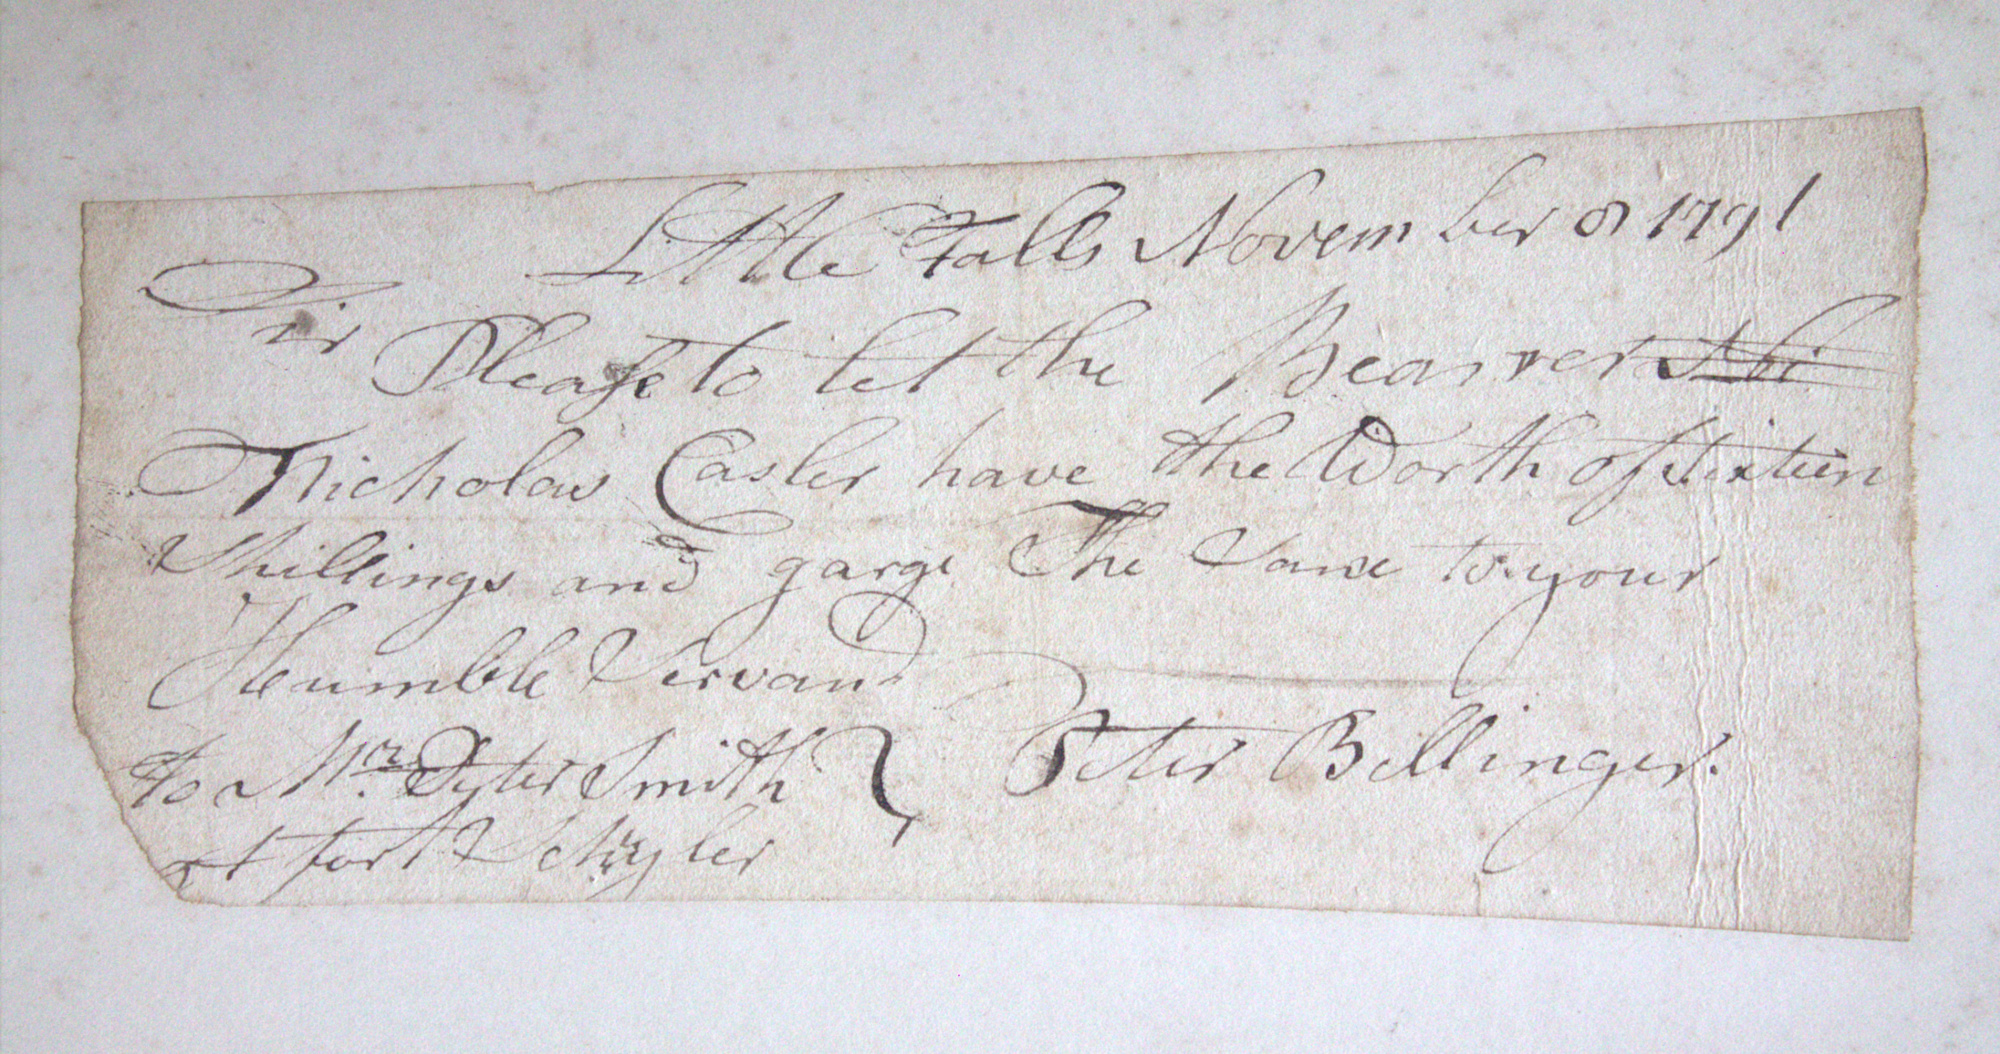 Little Falls November 8 1791
Sir
Please to let the Bearrer
Nicholas Casler have the Worth of Sixteen
Shillings and garge The Same to your
Heumble Servand
to Mr. Pyter Smith } Peter Bellinger.
at fort Schyler